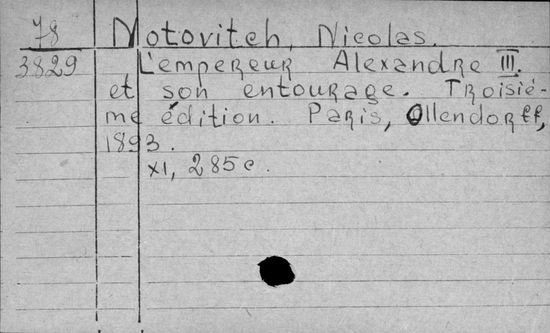 78 Notovitch, Nicolas.
3829 L'empereur Alexandre III.
et son entourage. Troisiè-
me édition. Paris, Ollendorff,
1893.
XI, 285 c.